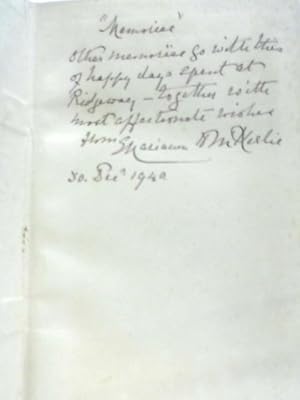 "Memories"
Other memories go with this
of happy days spent at
Ridgeway – together with
most affectionate wishes
from
30. Dec 1940